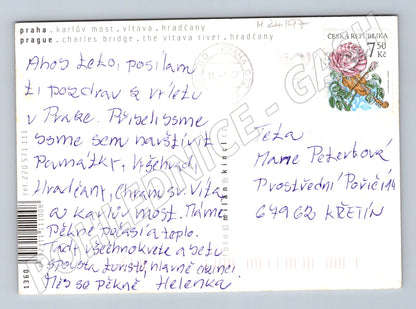 H24197
praha . karlův most . vltava . hradčany
prague . charles bridge . the vltava river . hradčany
ČESKÁ REPUBLIKA
7,50
Kč
Ahoj teto, posílám
ti pozdrav z výletu
v Praze. Přijeli jsme
jsme sem navštívit
Památky, Vyšehrad
Hradčany, Chram sv. Víta
a Karlův most. Máme
Pěkné počasí a teplo.
Tady všechno kvete a je tu
spousta turistů, hlavně cizinci.
Měj se pěkně Helenka
Teta
Marie Petertová
Prostřední Poříčí 14
67962 KŘETÍN
tel 220 571 111
1360
POHLEDNICE - GASH